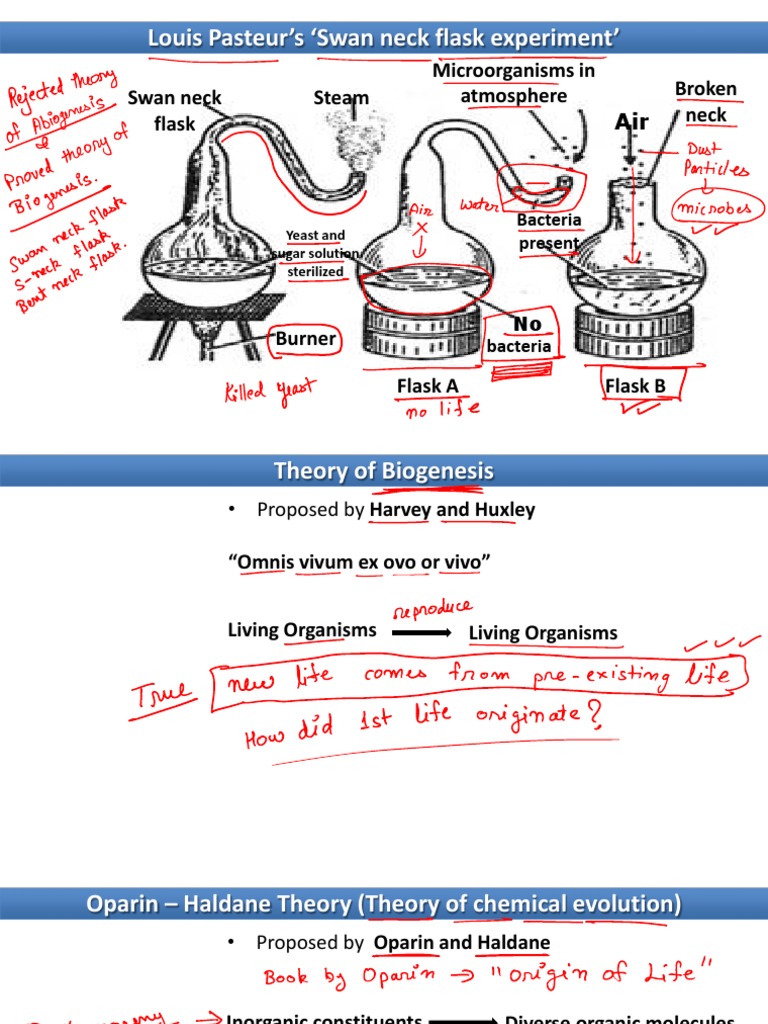 Louis Pasteur's 'Swan neck flask experiment'
Rejected theory
of Abiogenesis
&
Proved theory of
Biogenesis.
Swan neck flask
S-neck flask
Bent neck flask.
Swan neck
flask
Steam
Microorganisms in
atmosphere
Broken
neck
Air
Dust
Particles
microbes
Air
X
water
Bacteria
present
Yeast and
sugar solution
sterilized
Burner
No
bacteria
Killed yeast
Flask A
no life
Flask B
Theory of Biogenesis
• Proposed by Harvey and Huxley
“Omnis vivum ex ovo or vivo”
reproduce
Living Organisms Living Organisms
True
new life comes from pre-existing life
How did 1st life originate?
Oparin – Haldane Theory (Theory of chemical evolution)
• Proposed by Oparin and Haldane
Book by Oparin → "Origin of Life"
Inorganic constituents Diverse organic molecules